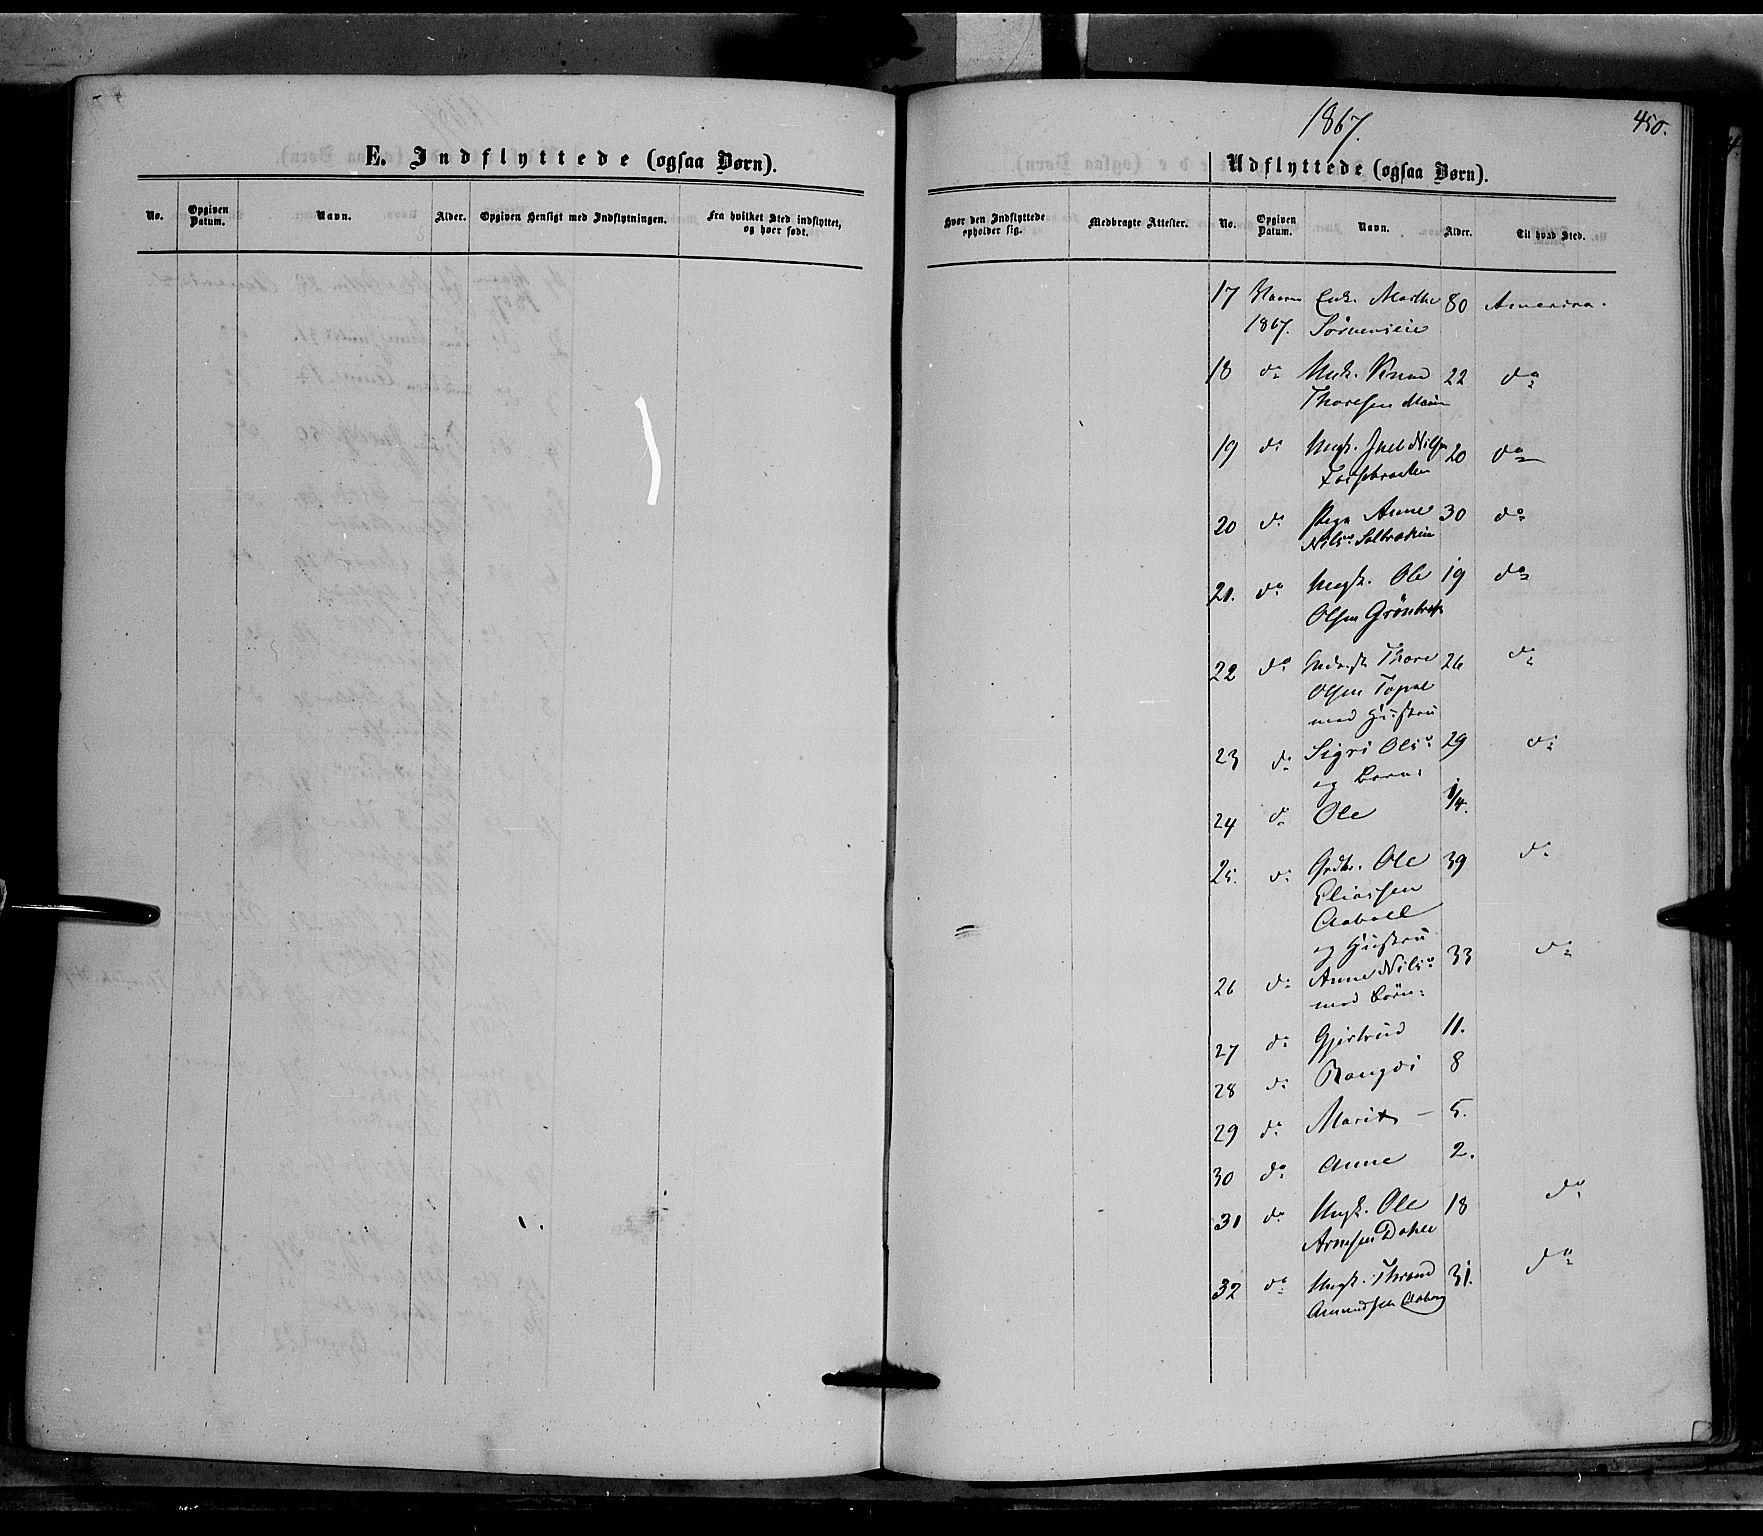 1867.
450.
E. Indflyttede (ogsaa Børn).
Udflyttede (ogsaa Børn).
No.
Opgiven Datum.
Navn.
Alder.
Opgiven Hensigt med Indflytningen.
Fra hvilket Sted indflyttet, og hvor født.
Hvor den Indflyttede opholder sig.
Medbragte Attester.
No.
Opgiven Datum.
Navn.
Alder.
Til hvad Sted.
17 Enke Marthe 80 America.
1867.
18 do Ungk. Knud 22 do
Thoresen
19 do Ungk. Juel Nilsen 20 do
20 do Pige Anne 30 do
Nilsd. Solbrækin
21. do Ungk. Ole 19 do
Olsen
22 do Thore 26 do
Olsen
med Hustru
23 do Sigri Olsd. 29 do
og Barn:
24 do Ole 1/4.
25. do Gdbr. Ole 39 do
Eliassen
og Hustru
26 do Anne Nilsd. 33 do
med Børn:
27 do Gjertrud 11.
28 do Rangdi 8
29 do Marit – 5.
30 do Anne 2.
31 do Ungk. Ole 18 do
Arnesen
32 do Ungk. Thrond 31. do
Amundsen